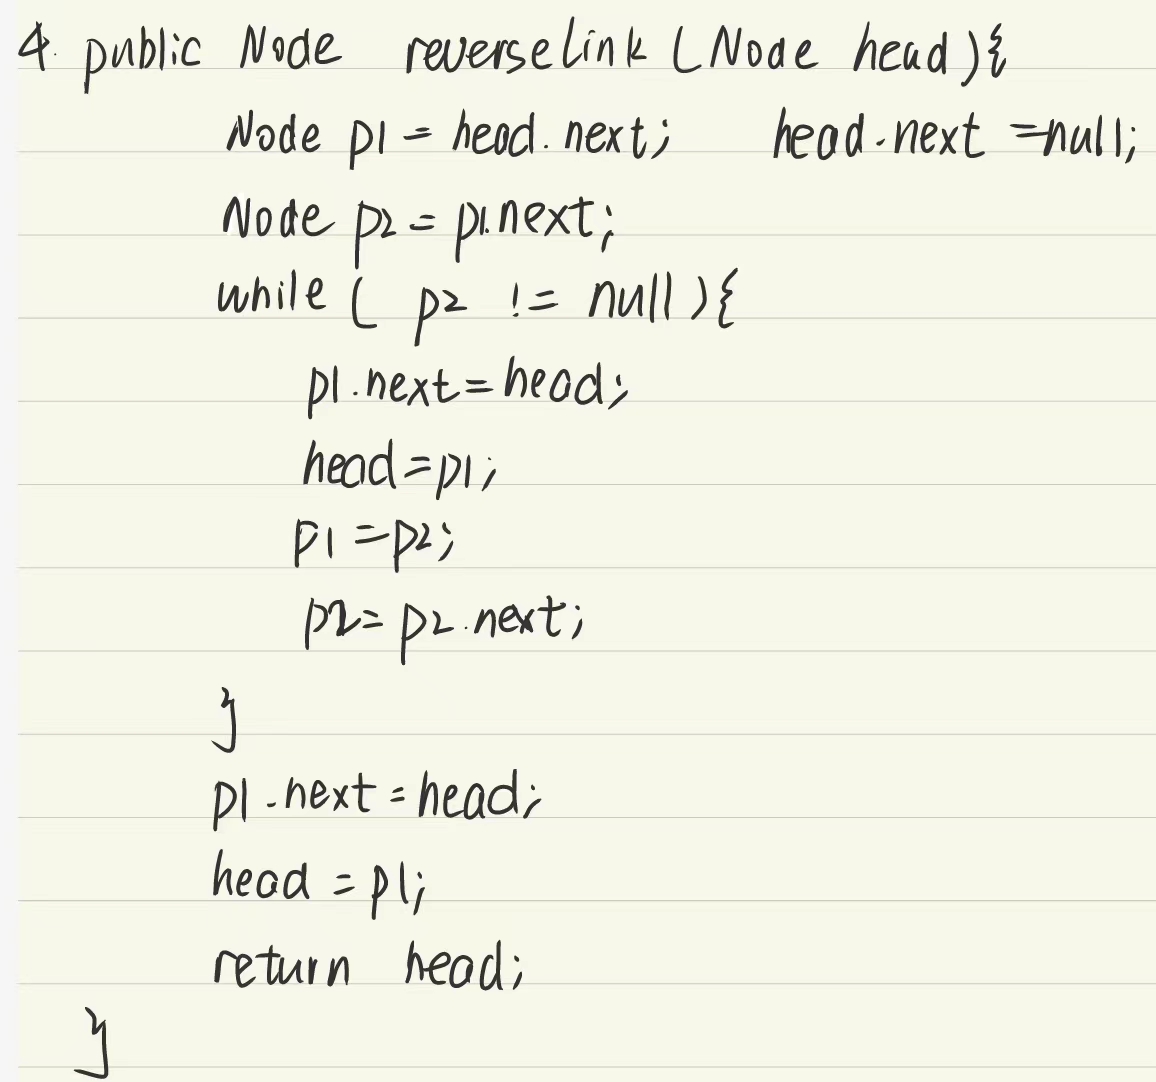 4. public Node reverseLink (Node head){
Node p1 = head.next; head.next = null;
Node p2 = p1.next;
while ( p2 != null){
p1.next = head;
head = p1;
p1 = p2;
p2 = p2.next;
}
p1.next = head;
head = p1;
return head;
}